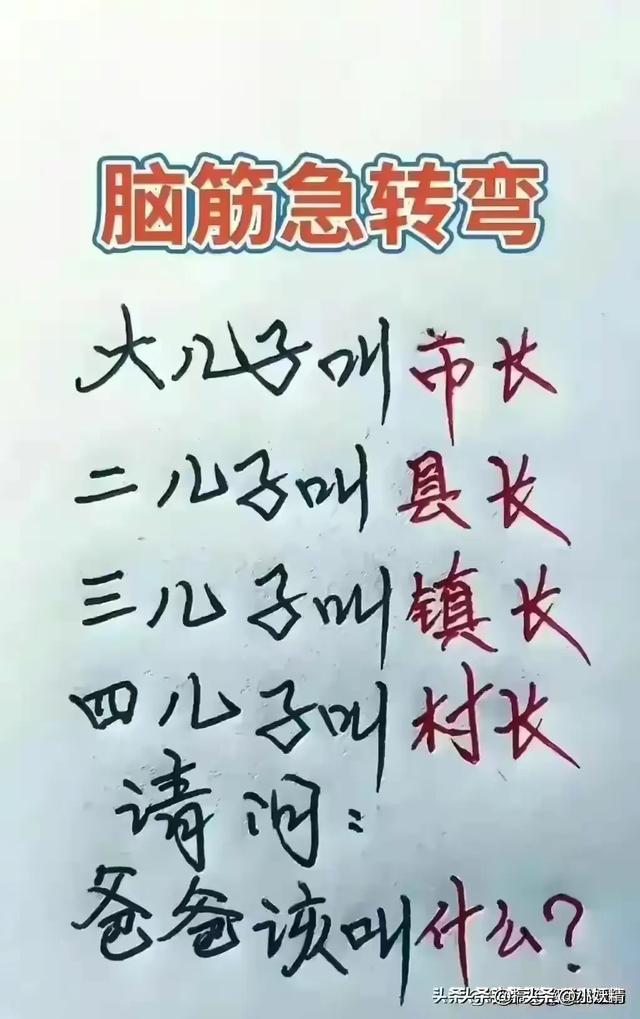 脑筋急转弯
大儿子叫市长
二儿子叫县长
三儿子叫镇长
四儿子叫村长
请问：
爸爸该叫什么？